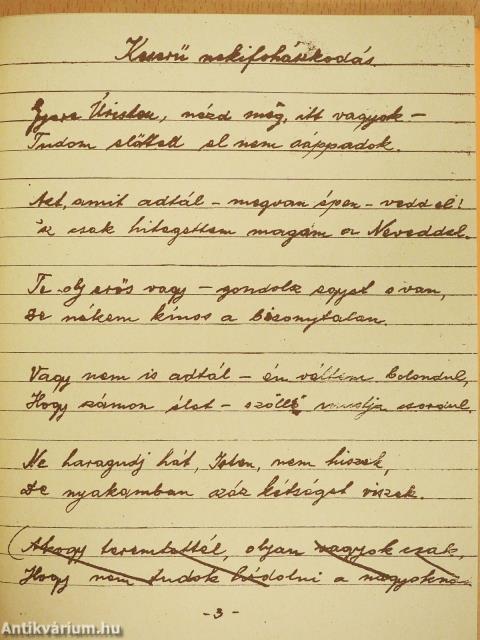 Keserű nekifohászkodás.
Gyere Úristen, nézd meg, itt vagyok –
Tudom előtted el nem
Azt, amit adtál – megvan épen – vedd el!
'sz csak hitegettem magam a Neveddel.
Te oly erős vagy – gondolsz egyet s van,
De nékem kínos a bizonytalan.
Vagy nem is adtál – én véltem bolondul,
Hogy számon élet – szőllő mustja csordul.
Ne haragudj hát, Isten, nem hiszek,
De nyakamban száz kétséget viszek.
(Ahogy teremtettél, olyan vagyok csak,
Hogy nem tudok hódolni a
- 3 -
Antikvárium.hu